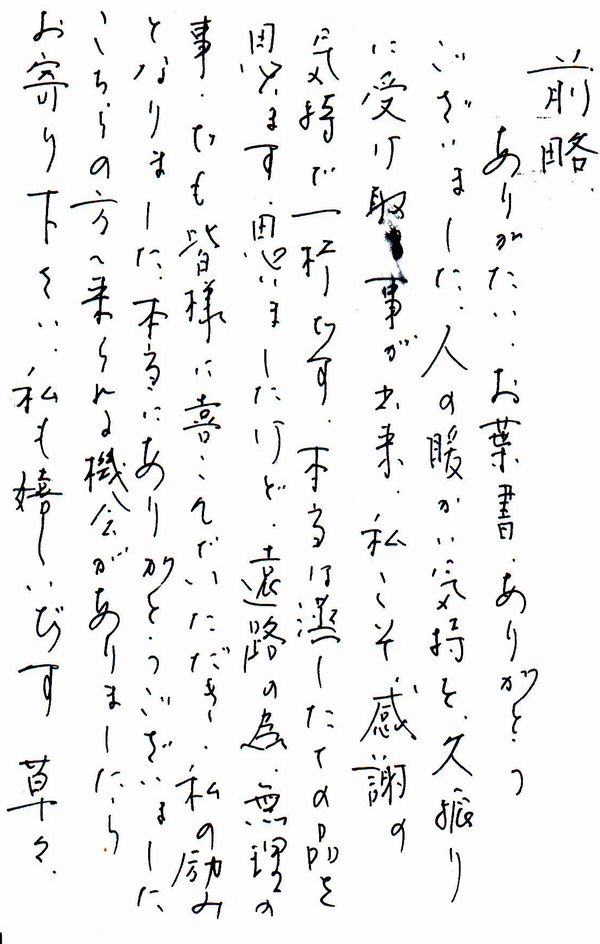 前略、
ありがたい、お葉書、ありがとう
ございました、人の暖かい気持を、久振り
に受け取 事が出来、私こそ感謝の
気持で一杯です、本当は漉したての品を
思います、思いましたけど、遠路の為、無理の
事、でも皆様に喜こんでいただき、私の励み
となりました、本当にありがとうございました
こちらの方へ来られる機会がありましたら
お寄り下さい、私も嬉しいです 草々、